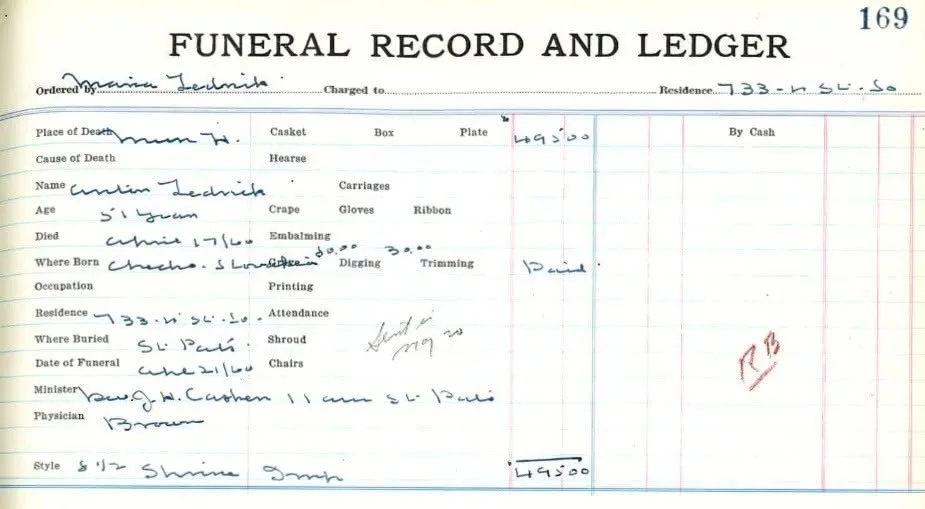 169
FUNERAL RECORD AND LEDGER
Ordered by Maria Lednik Charged to Residence 733-N St. So
Place of Death Mun H. Casket Box Plate 495 00 By Cash
Cause of Death Hearse
Name Anton Lednik Carriages
Age 51 years Crape Gloves Ribbon
Died April 17/60 Embalming
80.00 30.00
Where Born Checko-Slovakia Grave Digging Trimming Paid
Occupation Printing
Residence 733-N St. So. Attendance
Where Buried St. Pats Shroud
Sent in
May 20
Date of Funeral April 21/60 Chairs
RB
Minister Rev. J. H. Cashen 11 am St. Pats
Physician Brown
Style 8 1/2 Shrine Imp 495 00